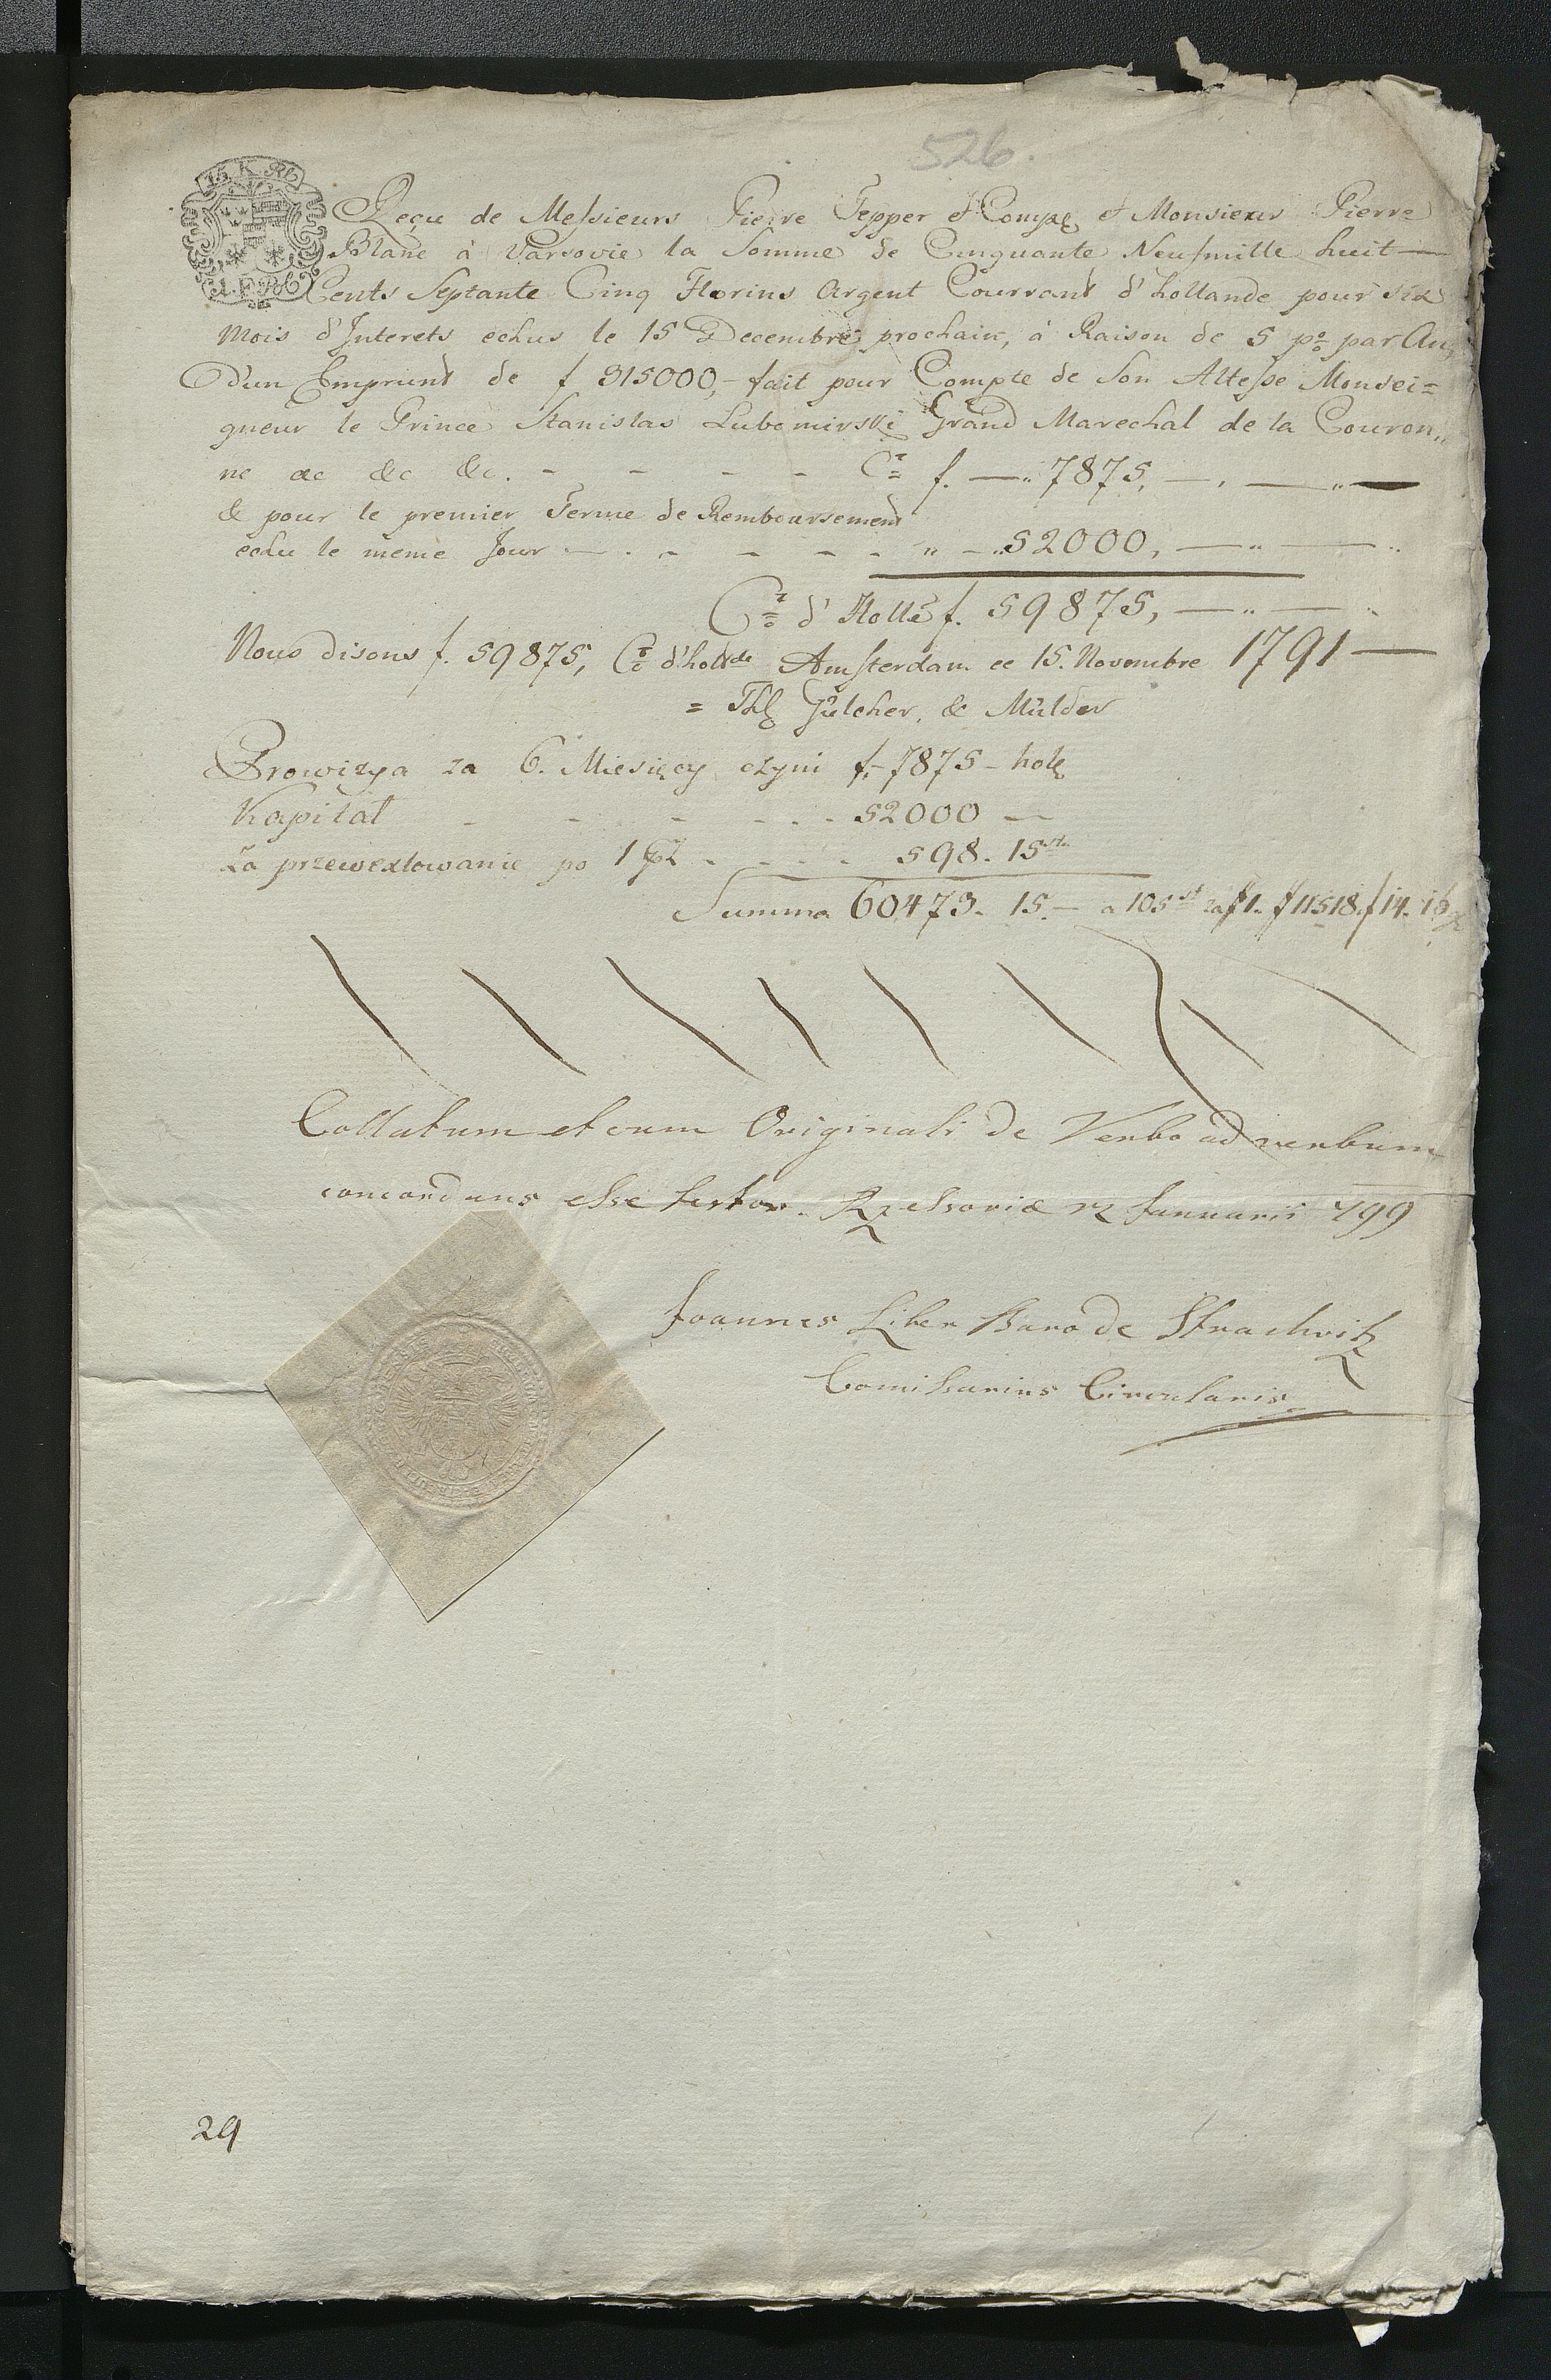 526.
15 K R
I. F. R.
Reçu de Messieurs Pierre Tepper et Compe et Monsieur Pierre
Blanc à Varsovie la Somme de Cinquante Neufmille huit —
Cents Septante Cinq Florins Argent Courrant d'hollande pour six
Mois d'Interets echus le 15 Decembre prochain, à Raison de 5 p% par An,
D'un Emprunt de f 315000,- fait pour Compte de Son Altesse Monsei=
gneur le Prince Stanislas Lubomirski Grand Marechal de la Couron„
ne &c &c &c. - - - - Ct f. —„ 7875, —
& pour le premier Terme de Remboursement
echu le meme Jour — . - - - - „ —„ 52000, —
Ct d'Holle f. 59875, —
Nous disons f. 59875, Ct d'hollde Amsterdam ce 15. Novembre 1791 —
= Gülcher, & Mülder
Prowizya za 6. Miesięcy czyni f,- 7875 - holl
Kapitał - - - - . . . 52000 —
Za przewexlowanie po 1 . . . . 598. 15 st
Summa 60473. 15. — a 105 st za # 1. # 11518. f 14.
Collatum et cum Originali de Verbo ad verbum
concordans esse testor. Rzessoviæ 12 Januarii 799
Joannes Liber Baro de Strachwitz
Comissarius Circularis
29